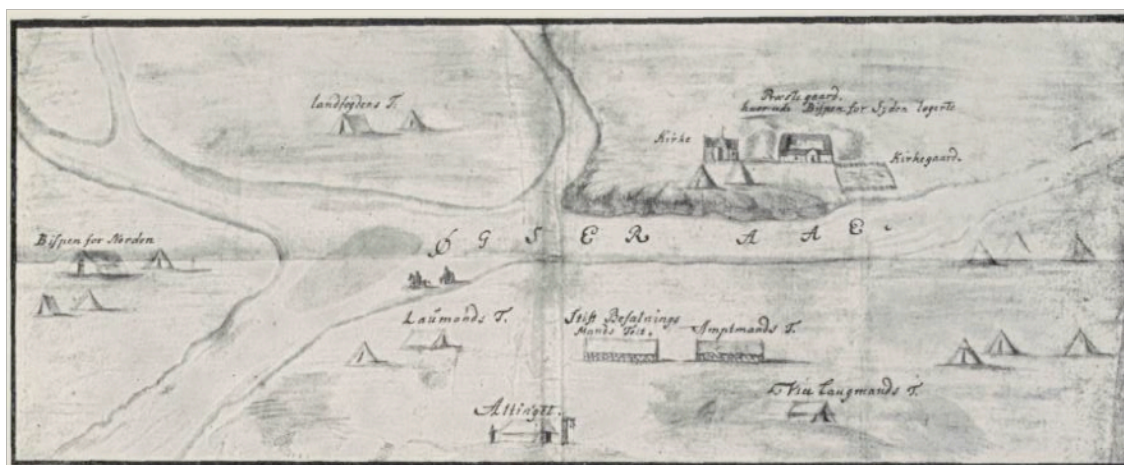 landfogdens T.
Præste gaard.
hvor ude Bispen for Syden logerte
Kirke
Kirkegaard.
Bispen for Norden
ÖGSER AAE.
Laumands T.
Stift Befalnings
Mands Telt.
Amptmands T.
Vice Laugmands T.
Altinget.